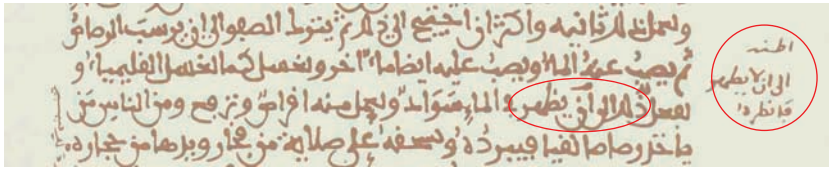 ويعمل ذلك ثانيه واكثر ان احتيج الى ذلك ثم يترك الصفو الى ان يرسب الرصاص
ثم يصب عنه الماء ويصب عليه ايضا ماء اخر ويغسل كما يغسل القليميا و
يفعل ذلك الى ان يظهر الماء سواد ويعمل منه اقراص وترفع ومن الناس من
ياخذ رصاصا نقيا فيبرده ويسحقه على صلاية من حجارة ويدها من حجارة
اظنه
الى ان لا يظهر
فانظره